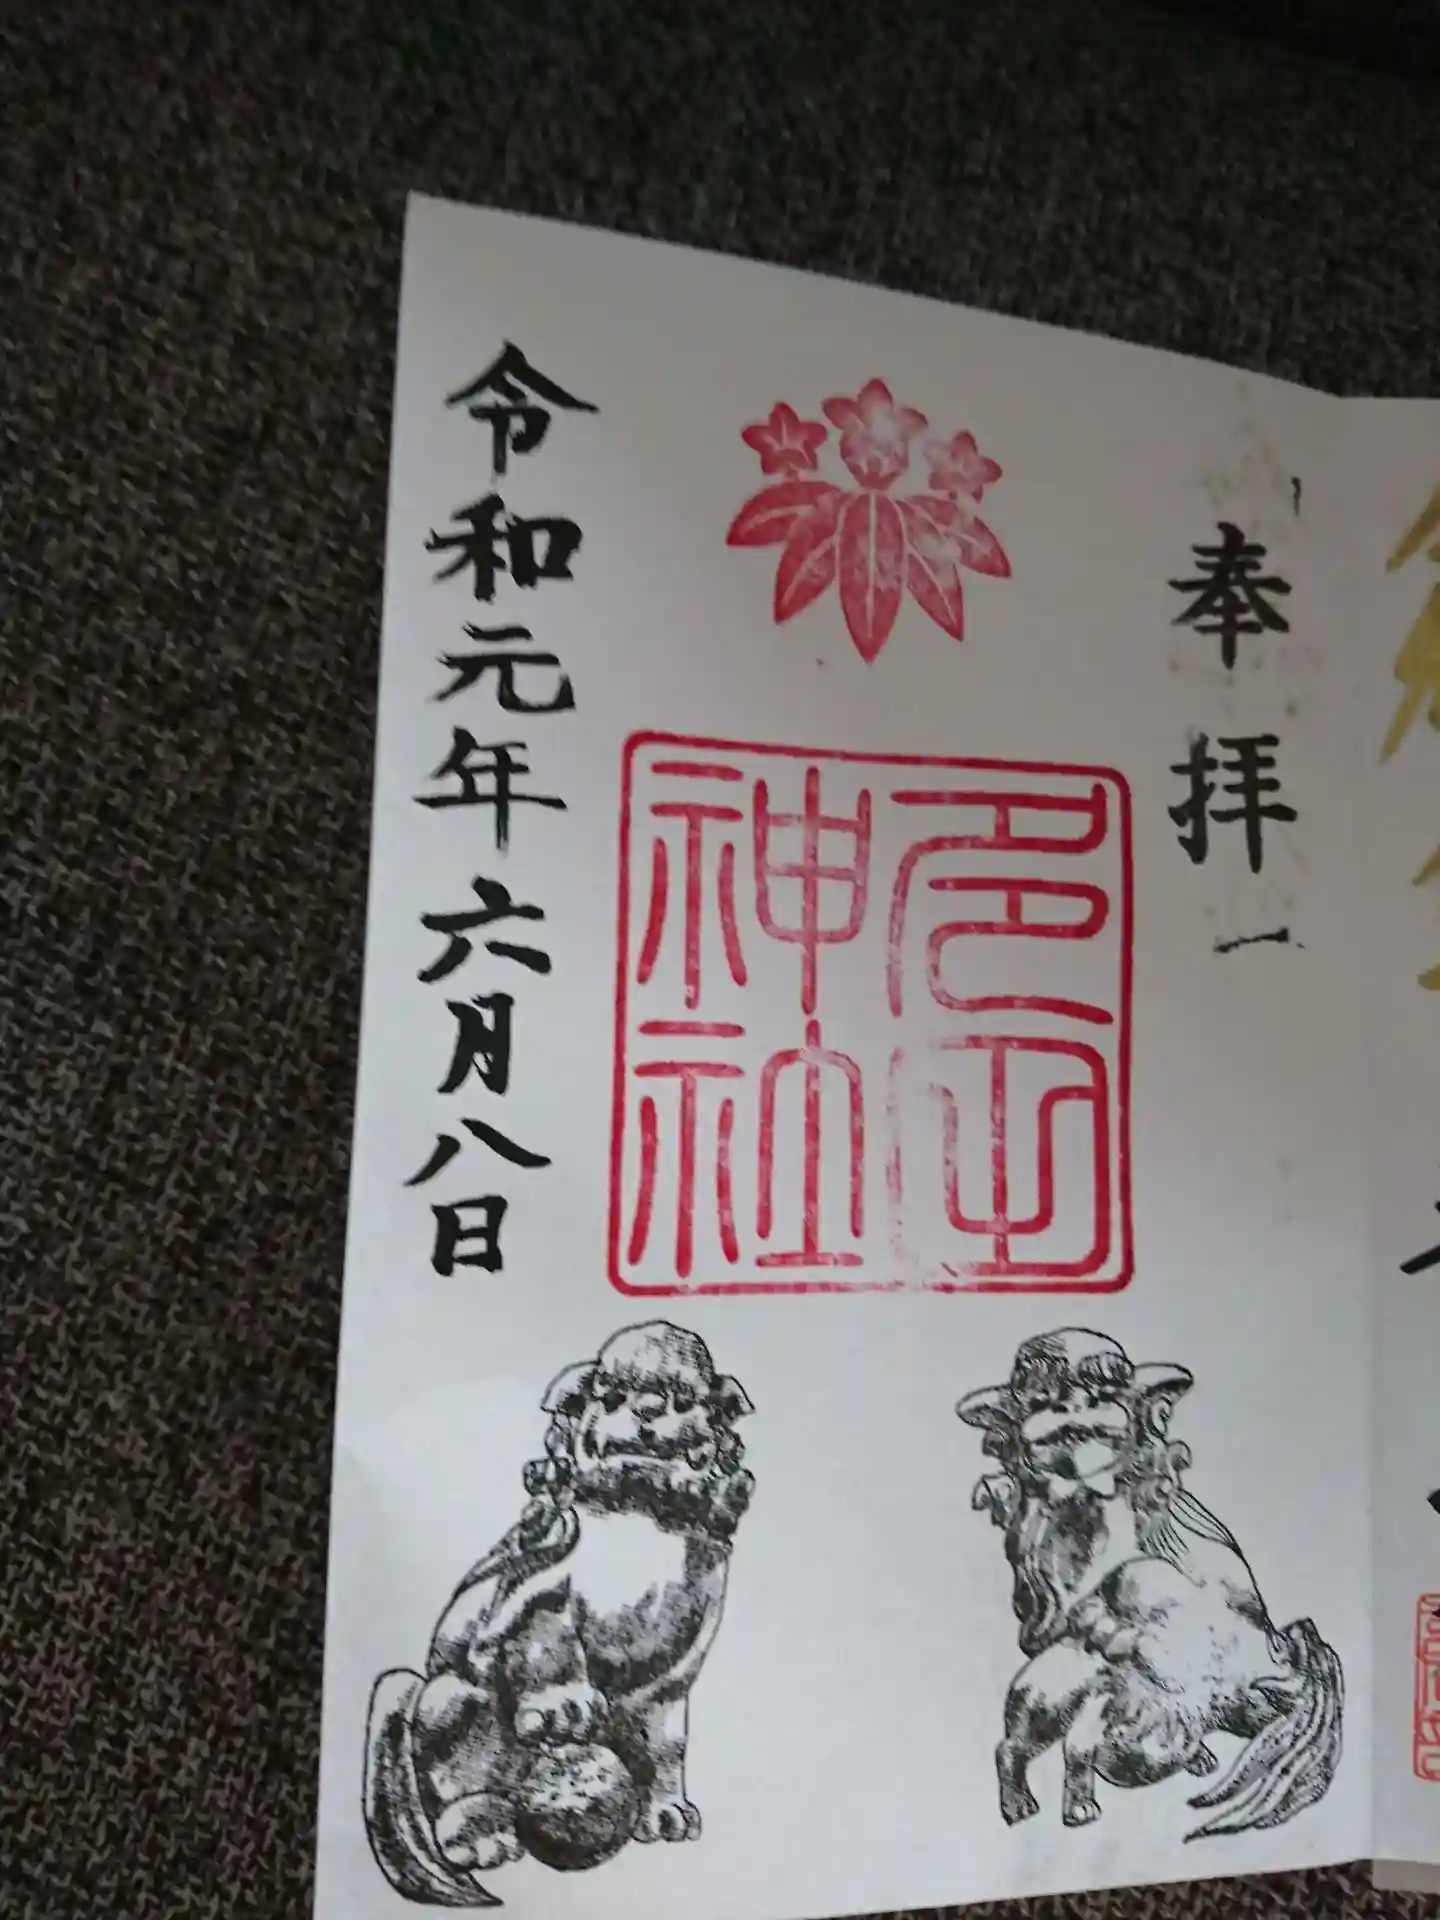 奉拝
多田
神社
令和元年六月八日